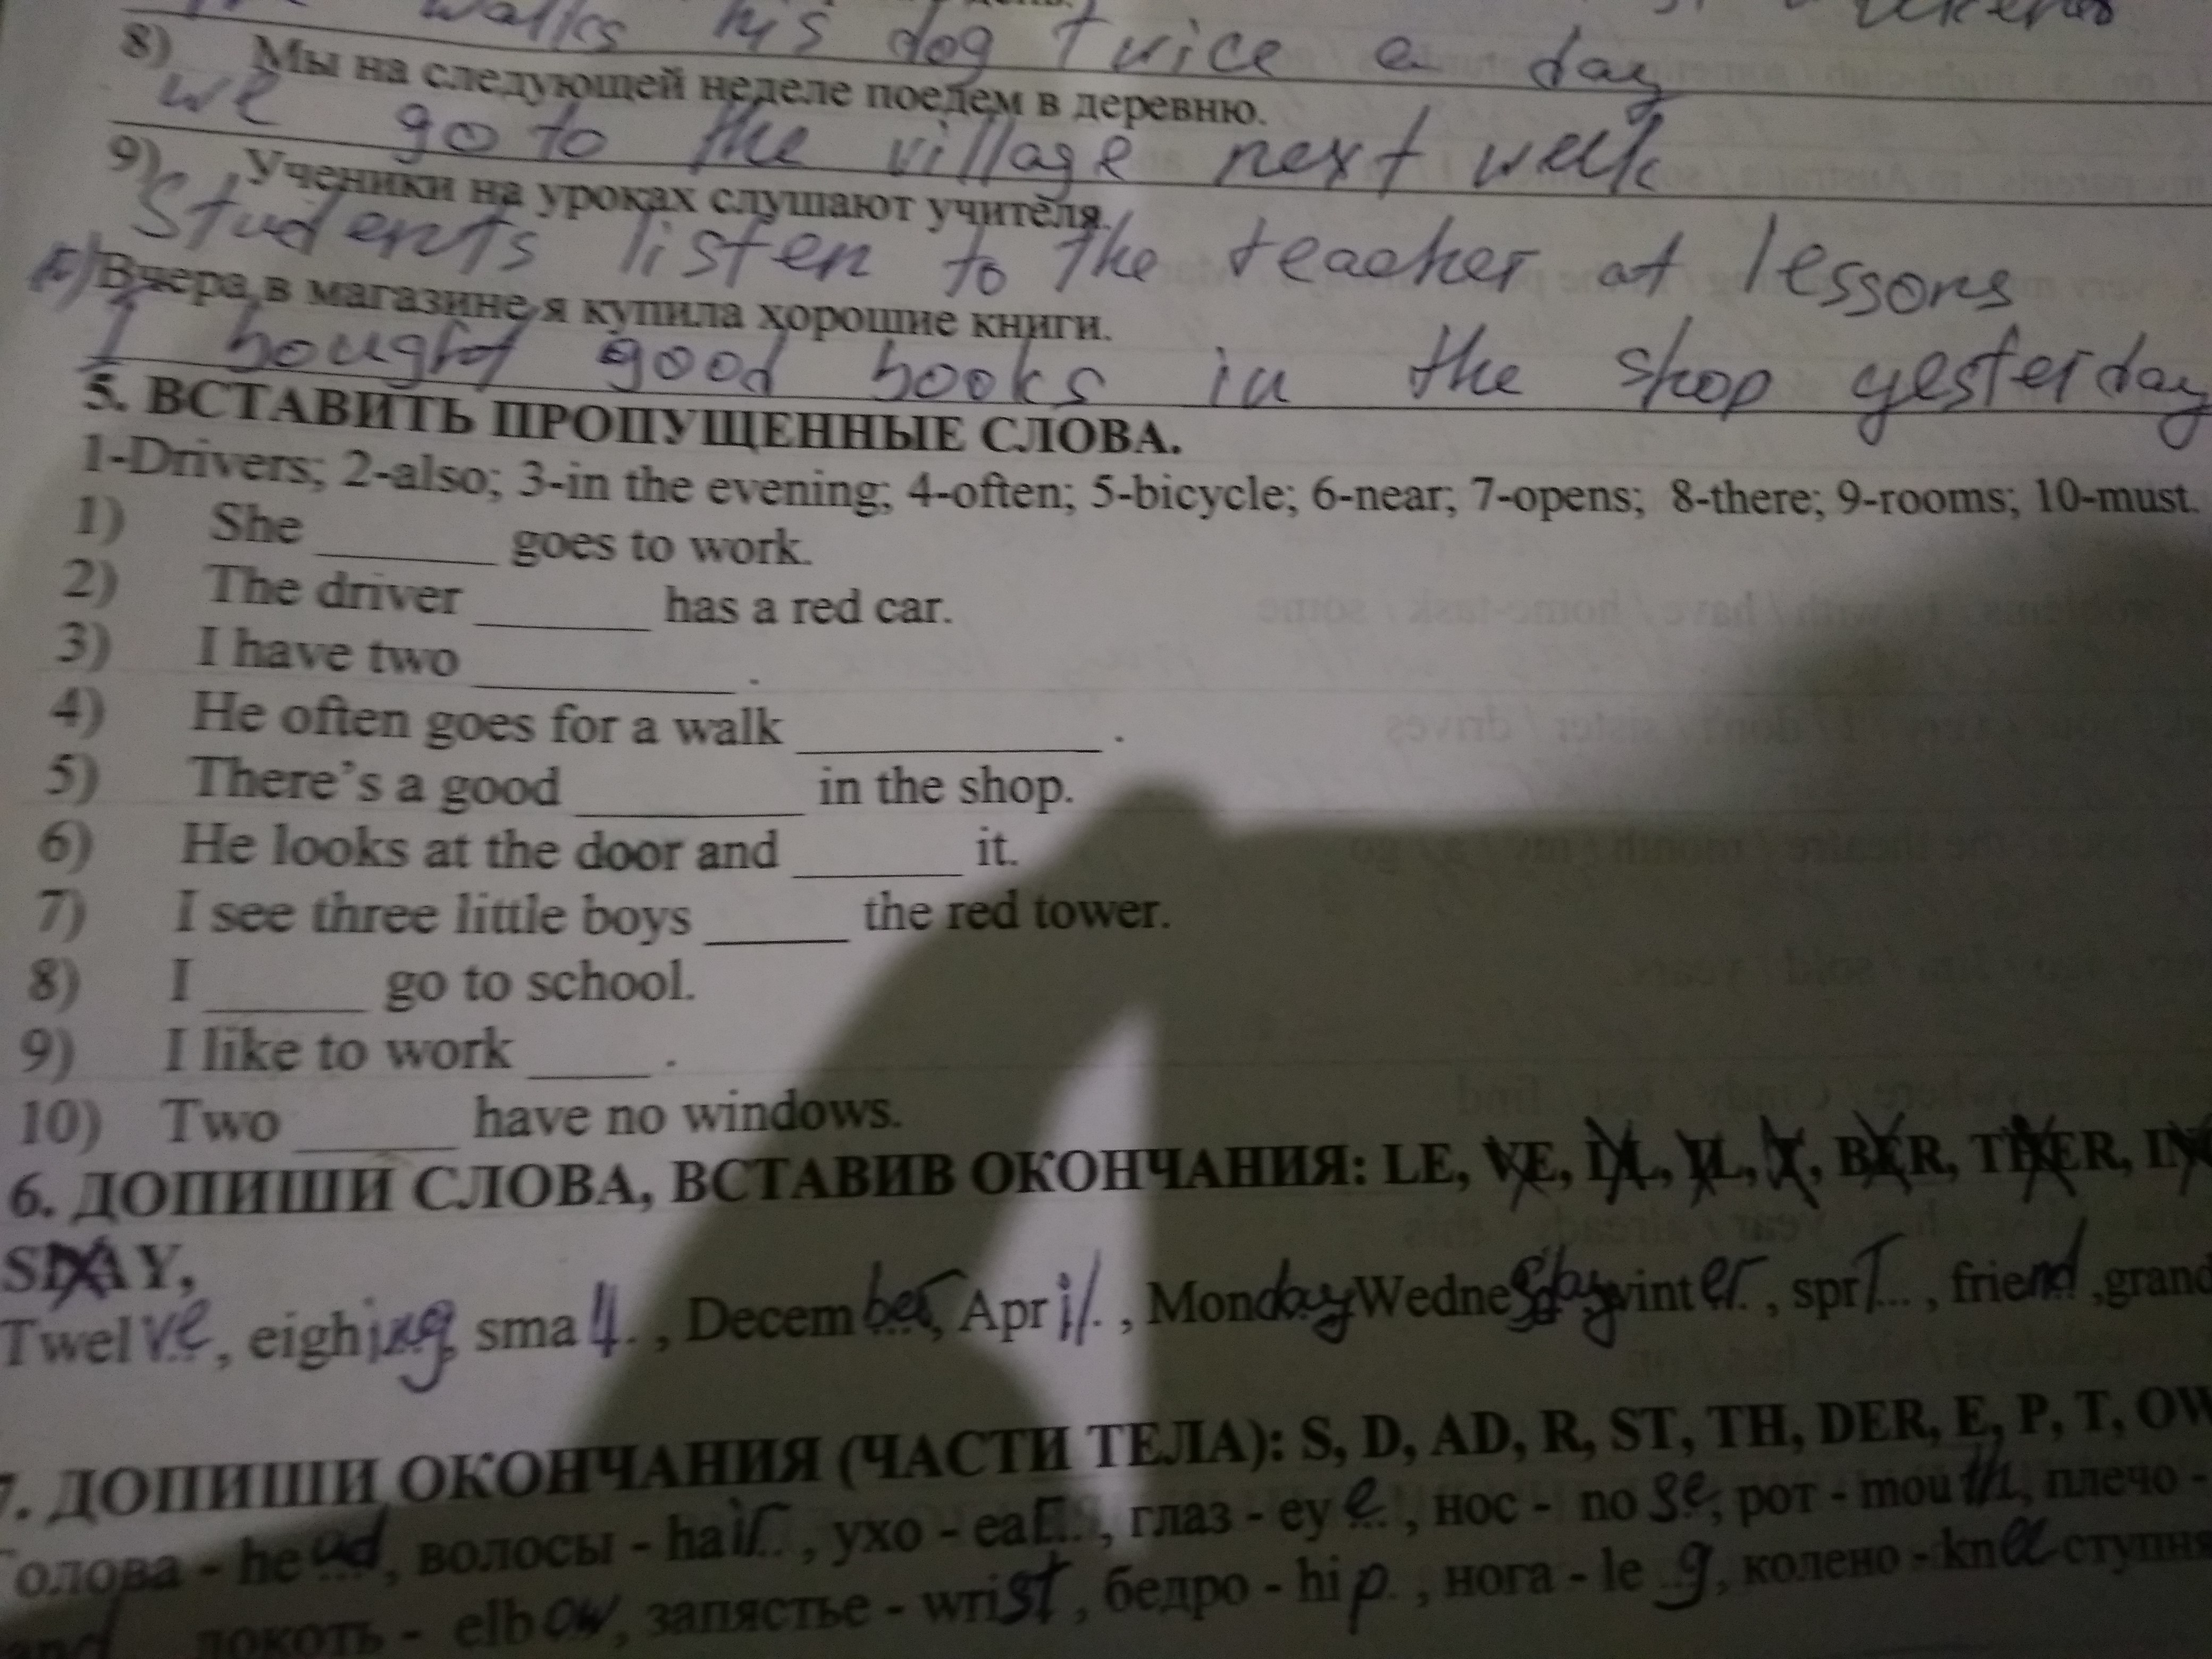 walks his dog twice a day
8) Мы на следующей неделе поедем в деревню.
we go to the village next week
9) Ученики на уроках слушают учителя.
Students listen to the teacher at lessons
Вчера в магазине я купила хорошие книги.
I bought good books in the shop yesterday
5. ВСТАВИТЬ ПРОПУЩЕННЫЕ СЛОВА.
1-Drivers; 2-also; 3-in the evening; 4-often; 5-bicycle; 6-near; 7-opens; 8-there; 9-rooms; 10-must.
1) She ______ goes to work.
2) The driver ______ has a red car.
3) I have two ______ .
4) He often goes for a walk ______ .
5) There's a good ______ in the shop.
6) He looks at the door and ______ it.
7) I see three little boys ______ the red tower.
8) I ______ go to school.
9) I like to work ______ .
10) Two ______ have no windows.
6. ДОПИШИ СЛОВА, ВСТАВИВ ОКОНЧАНИЯ: LE, VE, IL, Y, BER, TEER,
SDAY,
Twelve, eighing, sma ll , December, April , Monday Wednesday winter , sprI... , friend ,grand
7. ДОПИШИ ОКОНЧАНИЯ (ЧАСТИ ТЕЛА): S, D, AD, R, ST, TH, DER, E, P, T, OW
Голова - head, волосы - hair , ухо - ear , глаз - eye , нос - nose, рот - mouth, плечо -
локоть - elbow, запястье - wrist , бедро - hip , нога - leg, колено - knee ступня